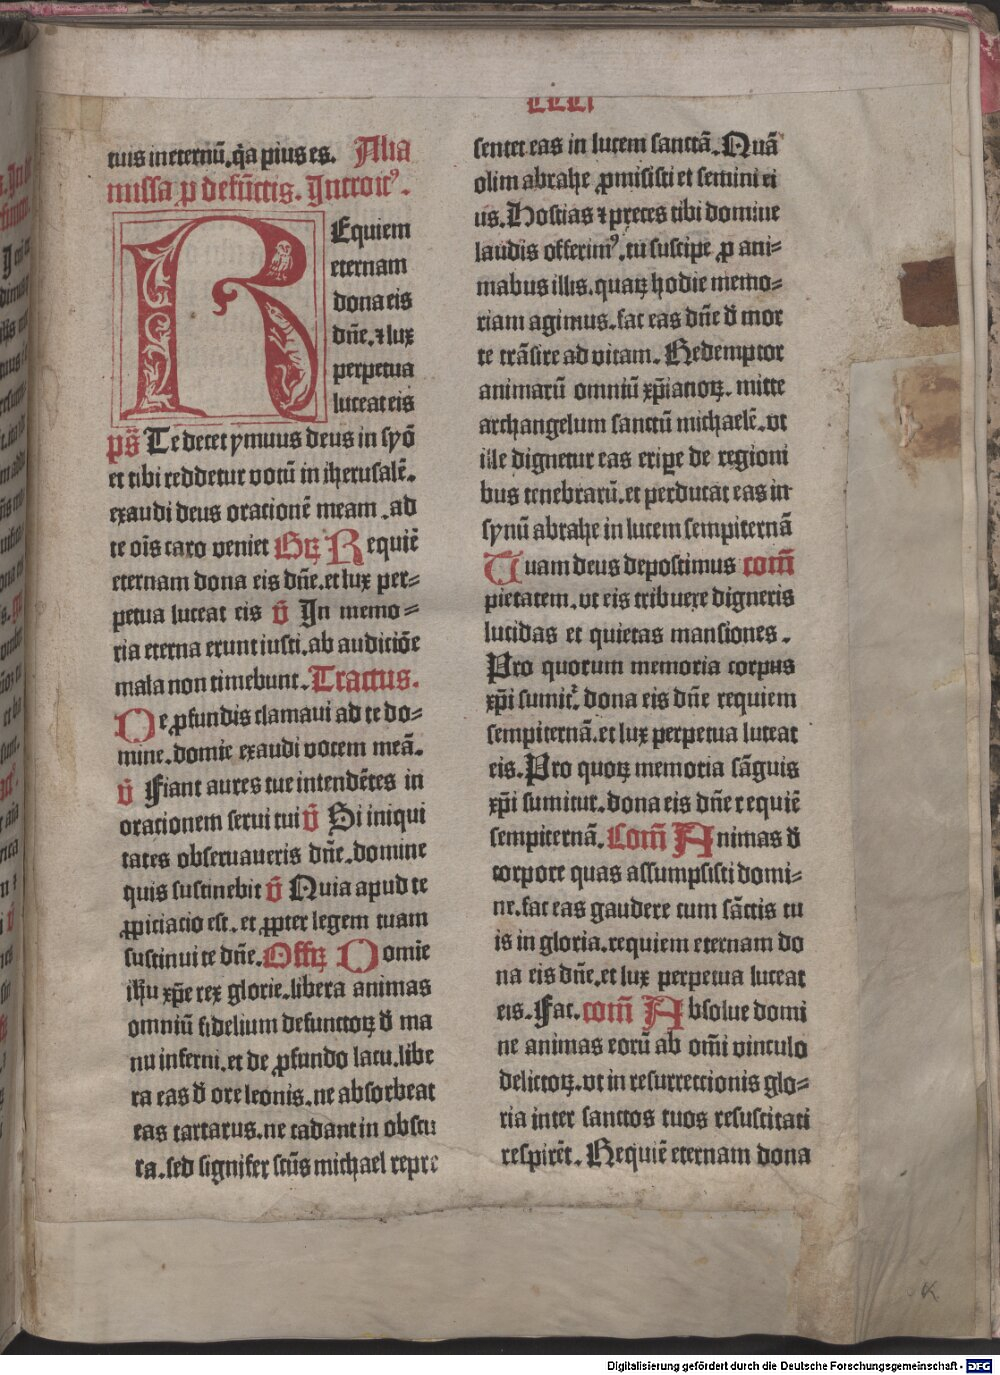 tuis in eternū. q̄a pius es. Alia
missa ꝓ defūctis. Introitꝰ.
REquiem
eternam
dona eis
dn̄e. ⁊ lux
perpetua
luceat eis
ps̄ Te decet ymnus deus in syō
et tibi reddetur votū in iherusalē.
exaudi deus orationē meam. ad
te oīs caro veniet Gꝝ Requiē
eternam dona eis dn̄e. et lux per⸗
petua luceat eis v̄ In memo⸗
ria eterna erunt iusti. ab auditiōe
mala non timebunt. Tractus.
De ꝓfundis clamaui ad te do⸗
mine. domīe exaudi vocem meā.
v̄ Fiant aures tue intendētes in
orationem serui tui v̄ Si iniqui
tates obseruaueris dn̄e. domine
quis sustinebit v̄ Quia apud te
ꝓpiciacio est. et ꝓpter legem tuam
sustinui te dn̄e. Offꝝ Domīe
ihū xp̄e rex glorie. libera animas
omniū fidelium defunctoꝝ đ ma
nu inferni. et de ꝓfundo lacu. libe
ra eas đ ore leonis. ne absorbeat
eas tartarus. ne cadant in obscu
ra. sed signifer scūs michael repre
sentet eas in lucem sanctā. Quā
olim abrahe ꝓmisisti et semini ei
us. Hostias ⁊ preces tibi domine
laudis offerimꝰ. tu suscipe ꝓ ani⸗
mabus illis. quaꝝ hodie memo⸗
riam agimus. fac eas dn̄e đ mor
te trāsire ad vitam. Redemptor
animarū omniū xp̄ianoꝝ. mitte
archangelum sanctū michaelē. vt
ille dignetur eas eripe de regioni
bus tenebrarū. et perducat eas in
synū abrahe in lucem sempiternā
Tuam deus deposcimus com̄
pietatem. vt eis tribuere digneris
lucidas et quietas mansiones.
Pro quorum memoria corpus
xp̄i sumit᷑. dona eis dn̄e requiem
sempiternā. et lux perpetua luceat
eis. Pro quoꝝ memoria sāguis
xp̄i sumitur. dona eis dn̄e requiē
sempiternā. Com̄ Animas đ
corpore quas assumpsisti domi⸗
ne. fac eas gaudere cum sāctis tu
is in gloria. requiem eternam do
na eis dn̄e. et lux perpetua luceat
eis. Fac. com̄ Absolue domi
ne animas eorū ab om̄i vinculo
delictoꝝ. vt in resurrectionis glo⸗
ria inter sanctos tuos resuscitati
respirēt. Requiē eternam dona
K
Digitalisierung gefördert durch die Deutsche Forschungsgemeinschaft - DFG